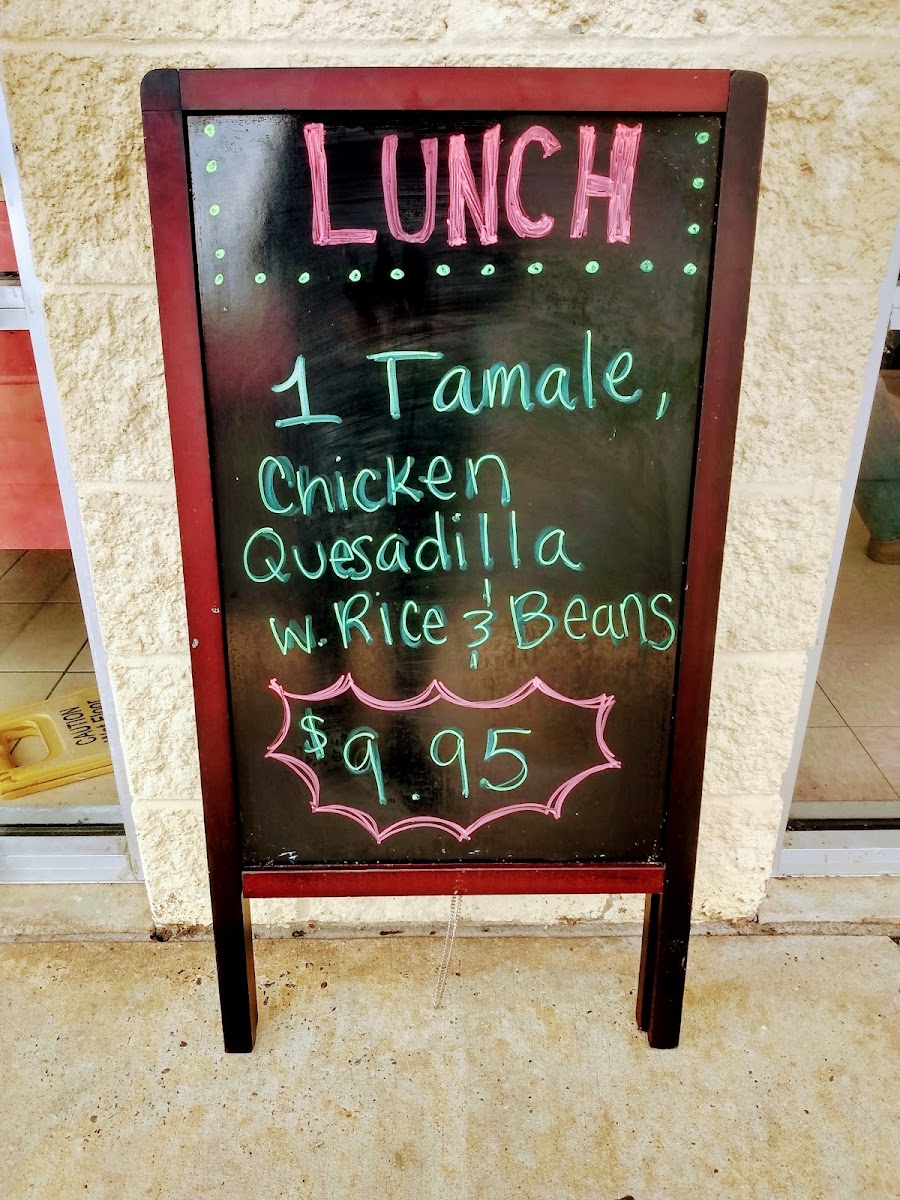 LUNCH
1 Tamale,
Chicken
Quesadilla
w. Rice & Beans
$9.95
CAUTION